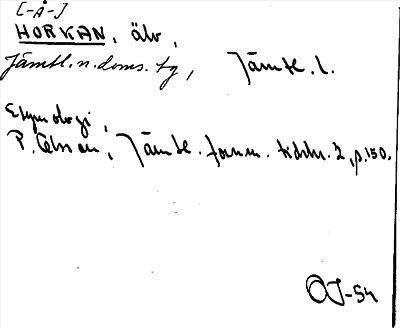 [-Å-]
HORKAN, älv,
Jämtl. n. doms. tg, Jämtl. l.
Etymologi,
P. Olsson, Jämtl. fornm. tidskr. 2, p. 150.
OJ-54